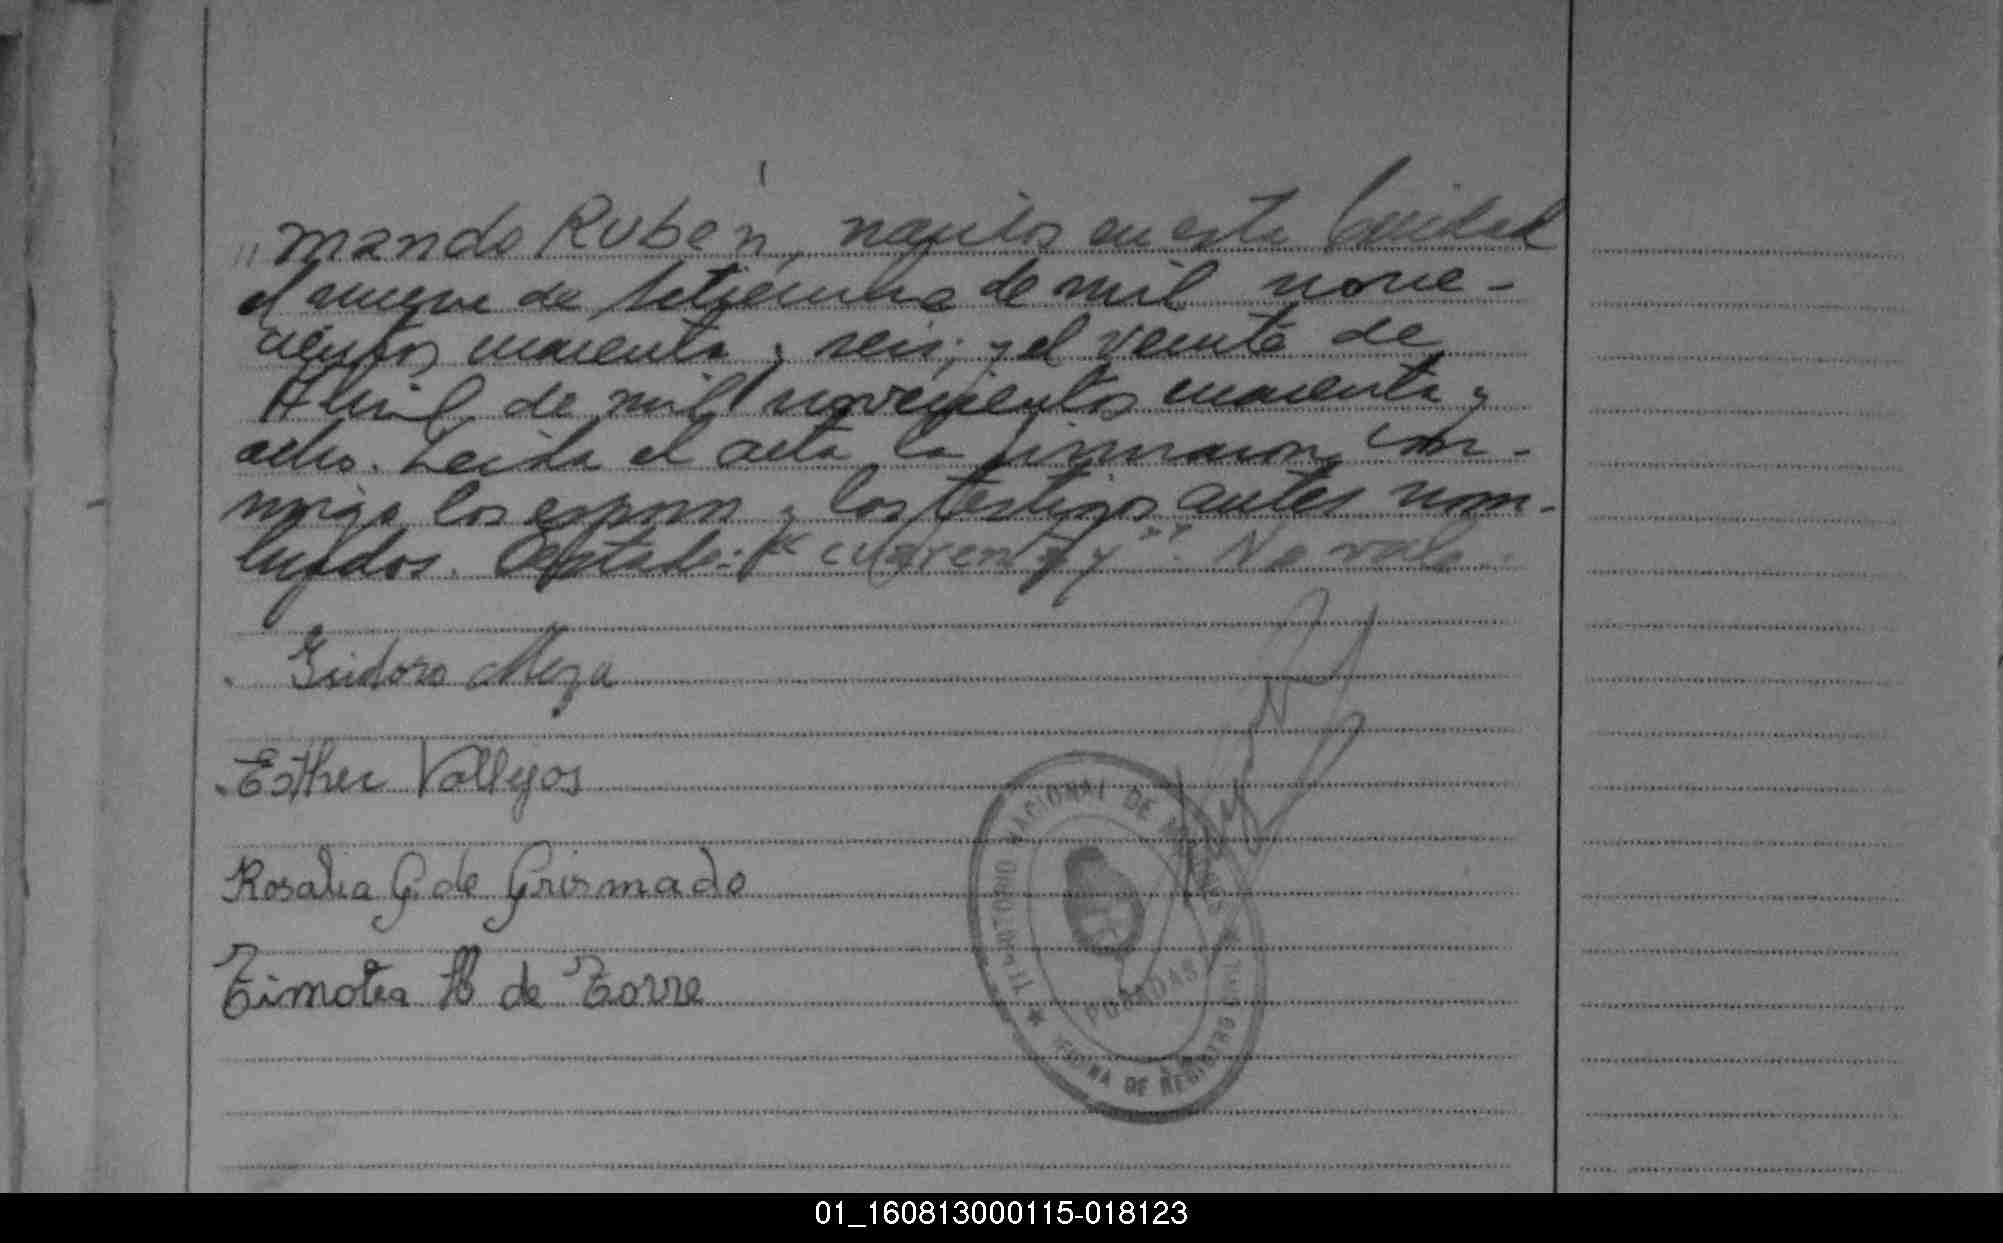 " mando Rubén, nacidos en esta Ciudad
el nueve de Setiembre de mil nove-
cientos cuarenta y seis; y el veinte de
Abril de mil novecientos cuarenta y
ocho. Leida el acta la firmaron con-
migo los esposos y los testigos antes nom-
brados. Testado: "cuarenta y". No vale.
Isidoro Meza
Esther Vallejos
Rosalia G. de Grismado
Timotea B de Torre
TERRITORIO NACIONAL DE MISIONES
POSADAS
OFICINA DE REGISTRO CIVIL
01_160813000115-018123